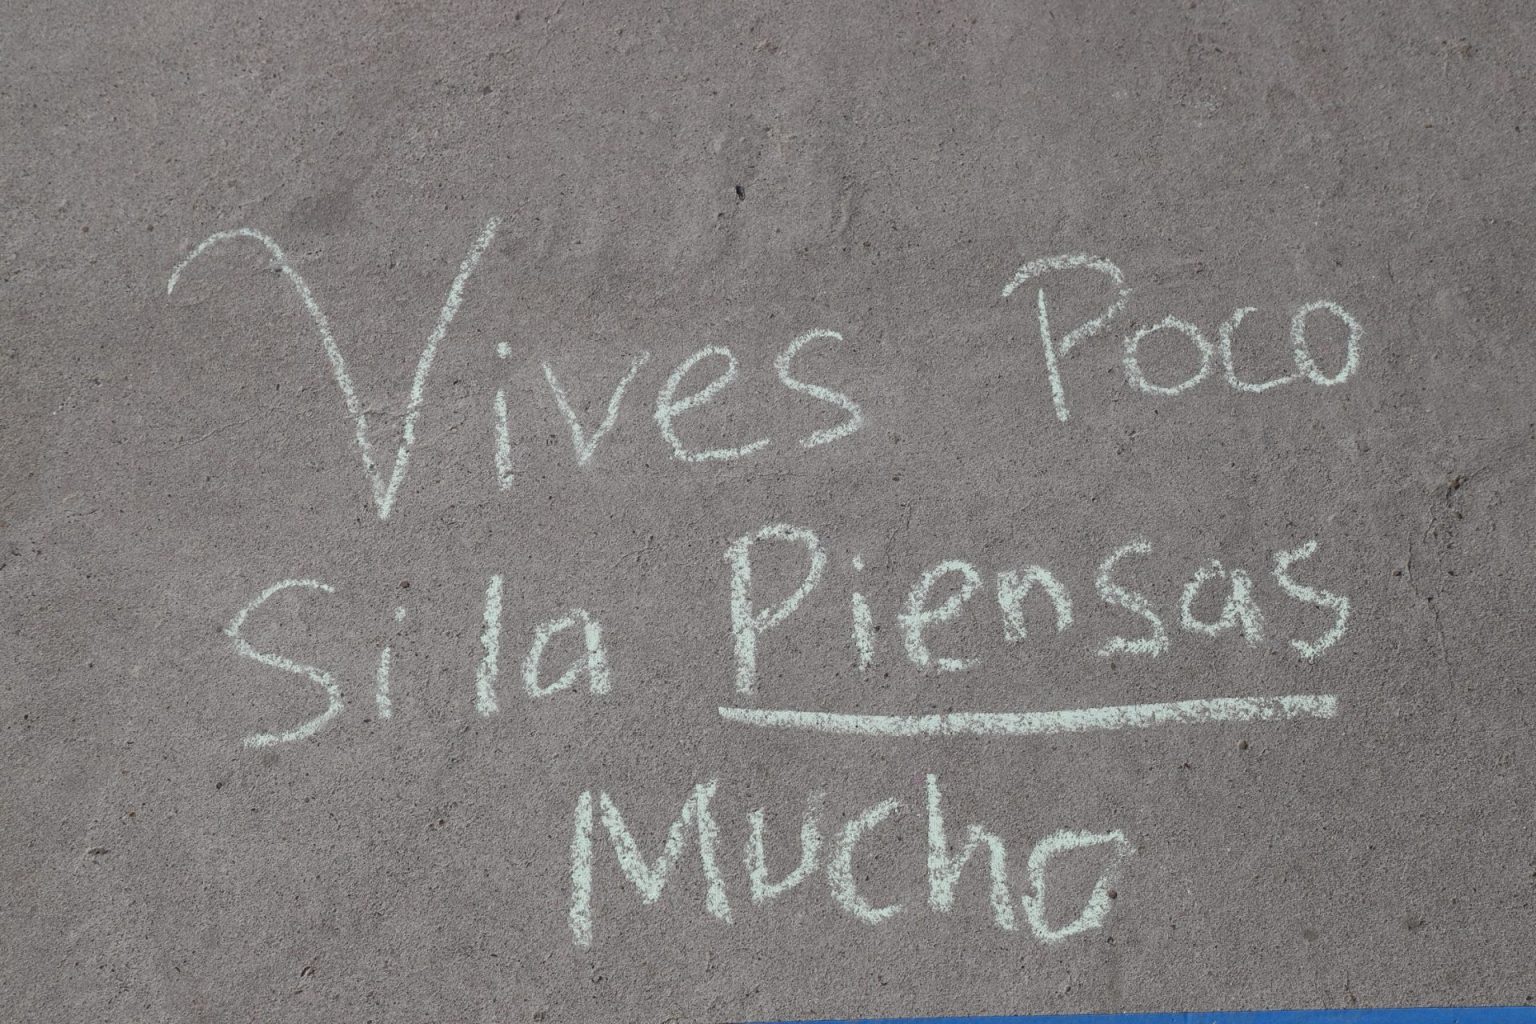 Vives Poco
Si la Piensas
Mucho